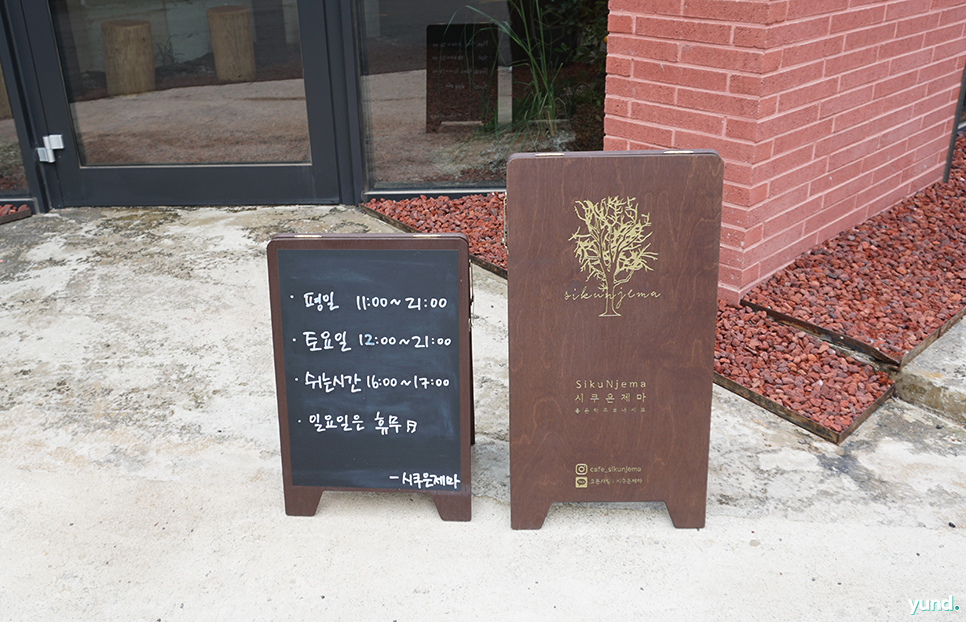 · 평일 11:00~21:00
· 토요일 12:00~21:00
· 쉬는시간 16:00~17:00
· 일요일은 休무日
-시쿠은제마
sikunjema
SikuNjema
시쿠은제마
cafe_sikunjema
오픈채팅 : 시쿠은제마
yund.